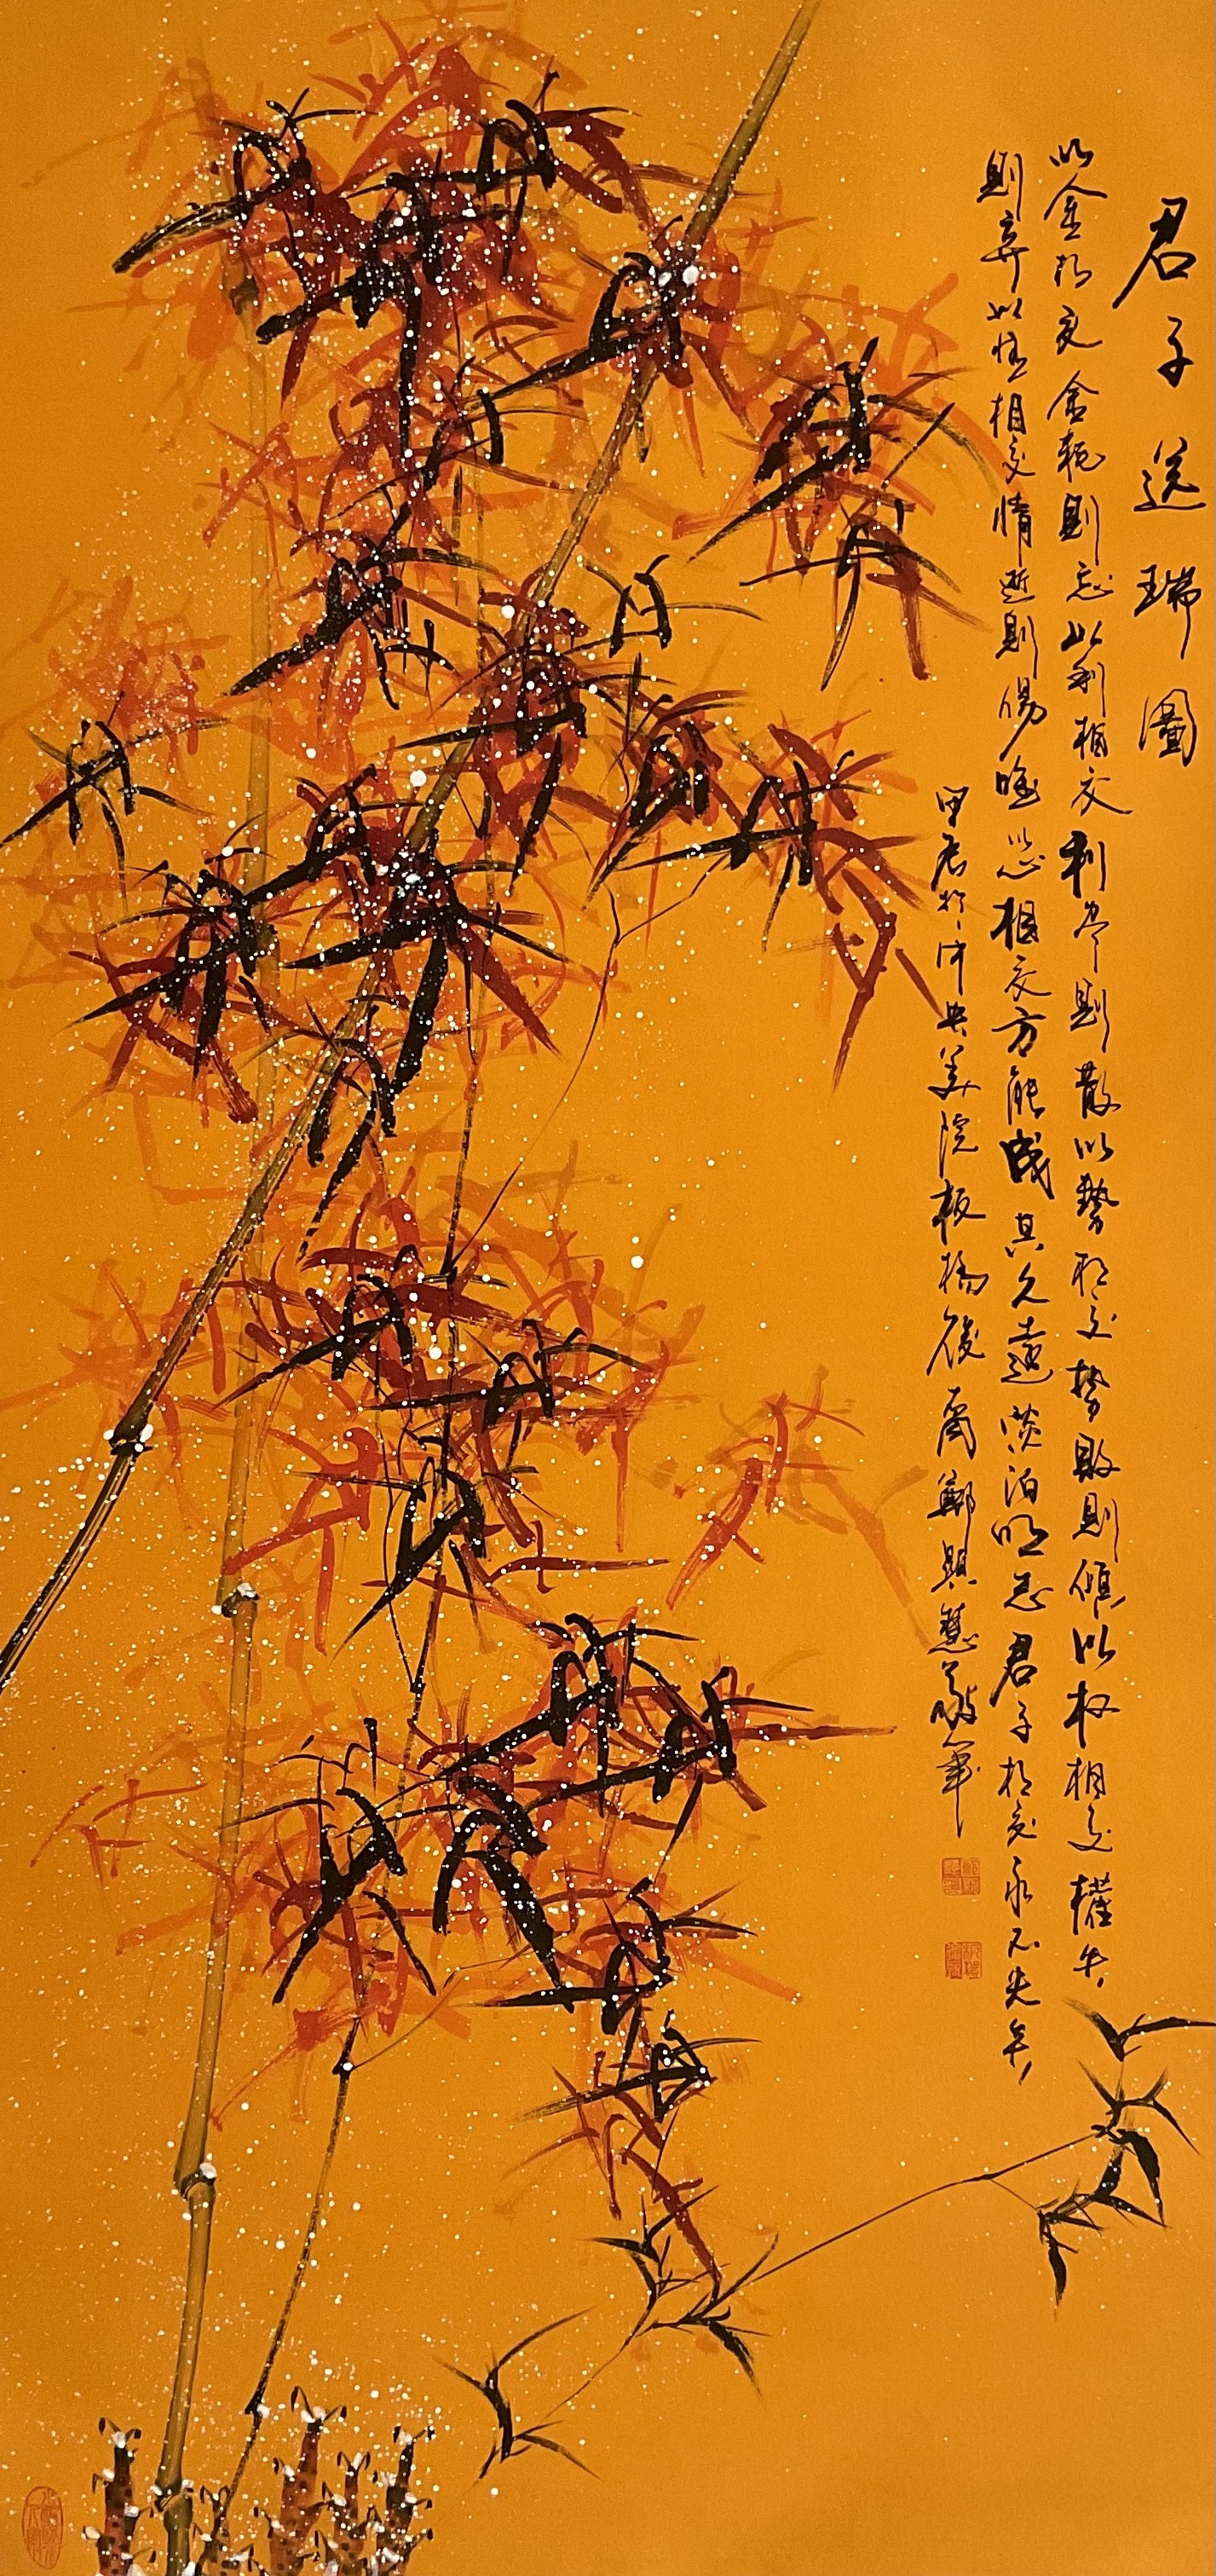 君子送瑞圖
以金相交金耗則忘以利相交利尽則散以勢相交势敗則傾以权相交權失
則弃以情相交情逝則傷唯以心相交方能成其久遠淡泊明志君子相交永不失矣
甲辰於中央美院板橋後裔鄭興慧敬筆